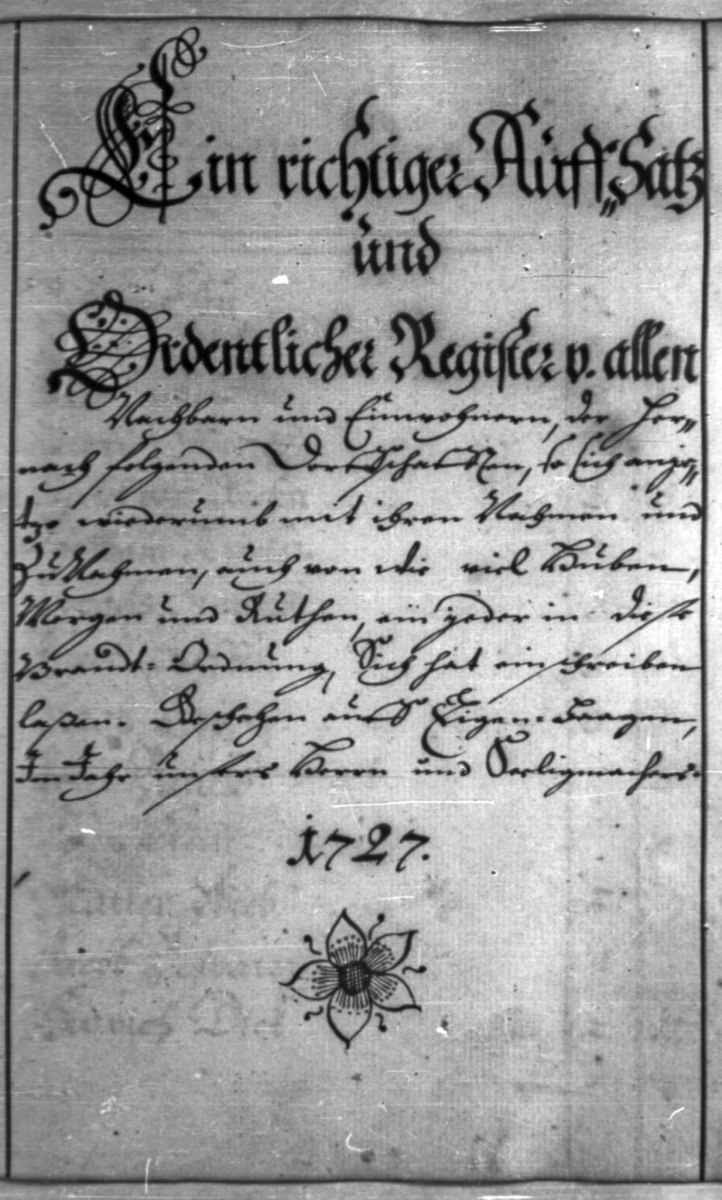 Ein richtiger Auff„Satz
und
Ordentlicher Register v. allen
Nachbarn und Einwohnern, der her„
nach folgenden Dorffschafften, so sich anje„
tzo wiederumb mit ihren Nahmen und
ZuNahmen, auch von wie viel Huben,
Morgen und Ruthen, ein jeder in diese
Brandt-Ordnung, Sich hat einschreiben
laßen. Geschehen auff
Im Jahr unsers Herrn und Seeligmachers.
1727.